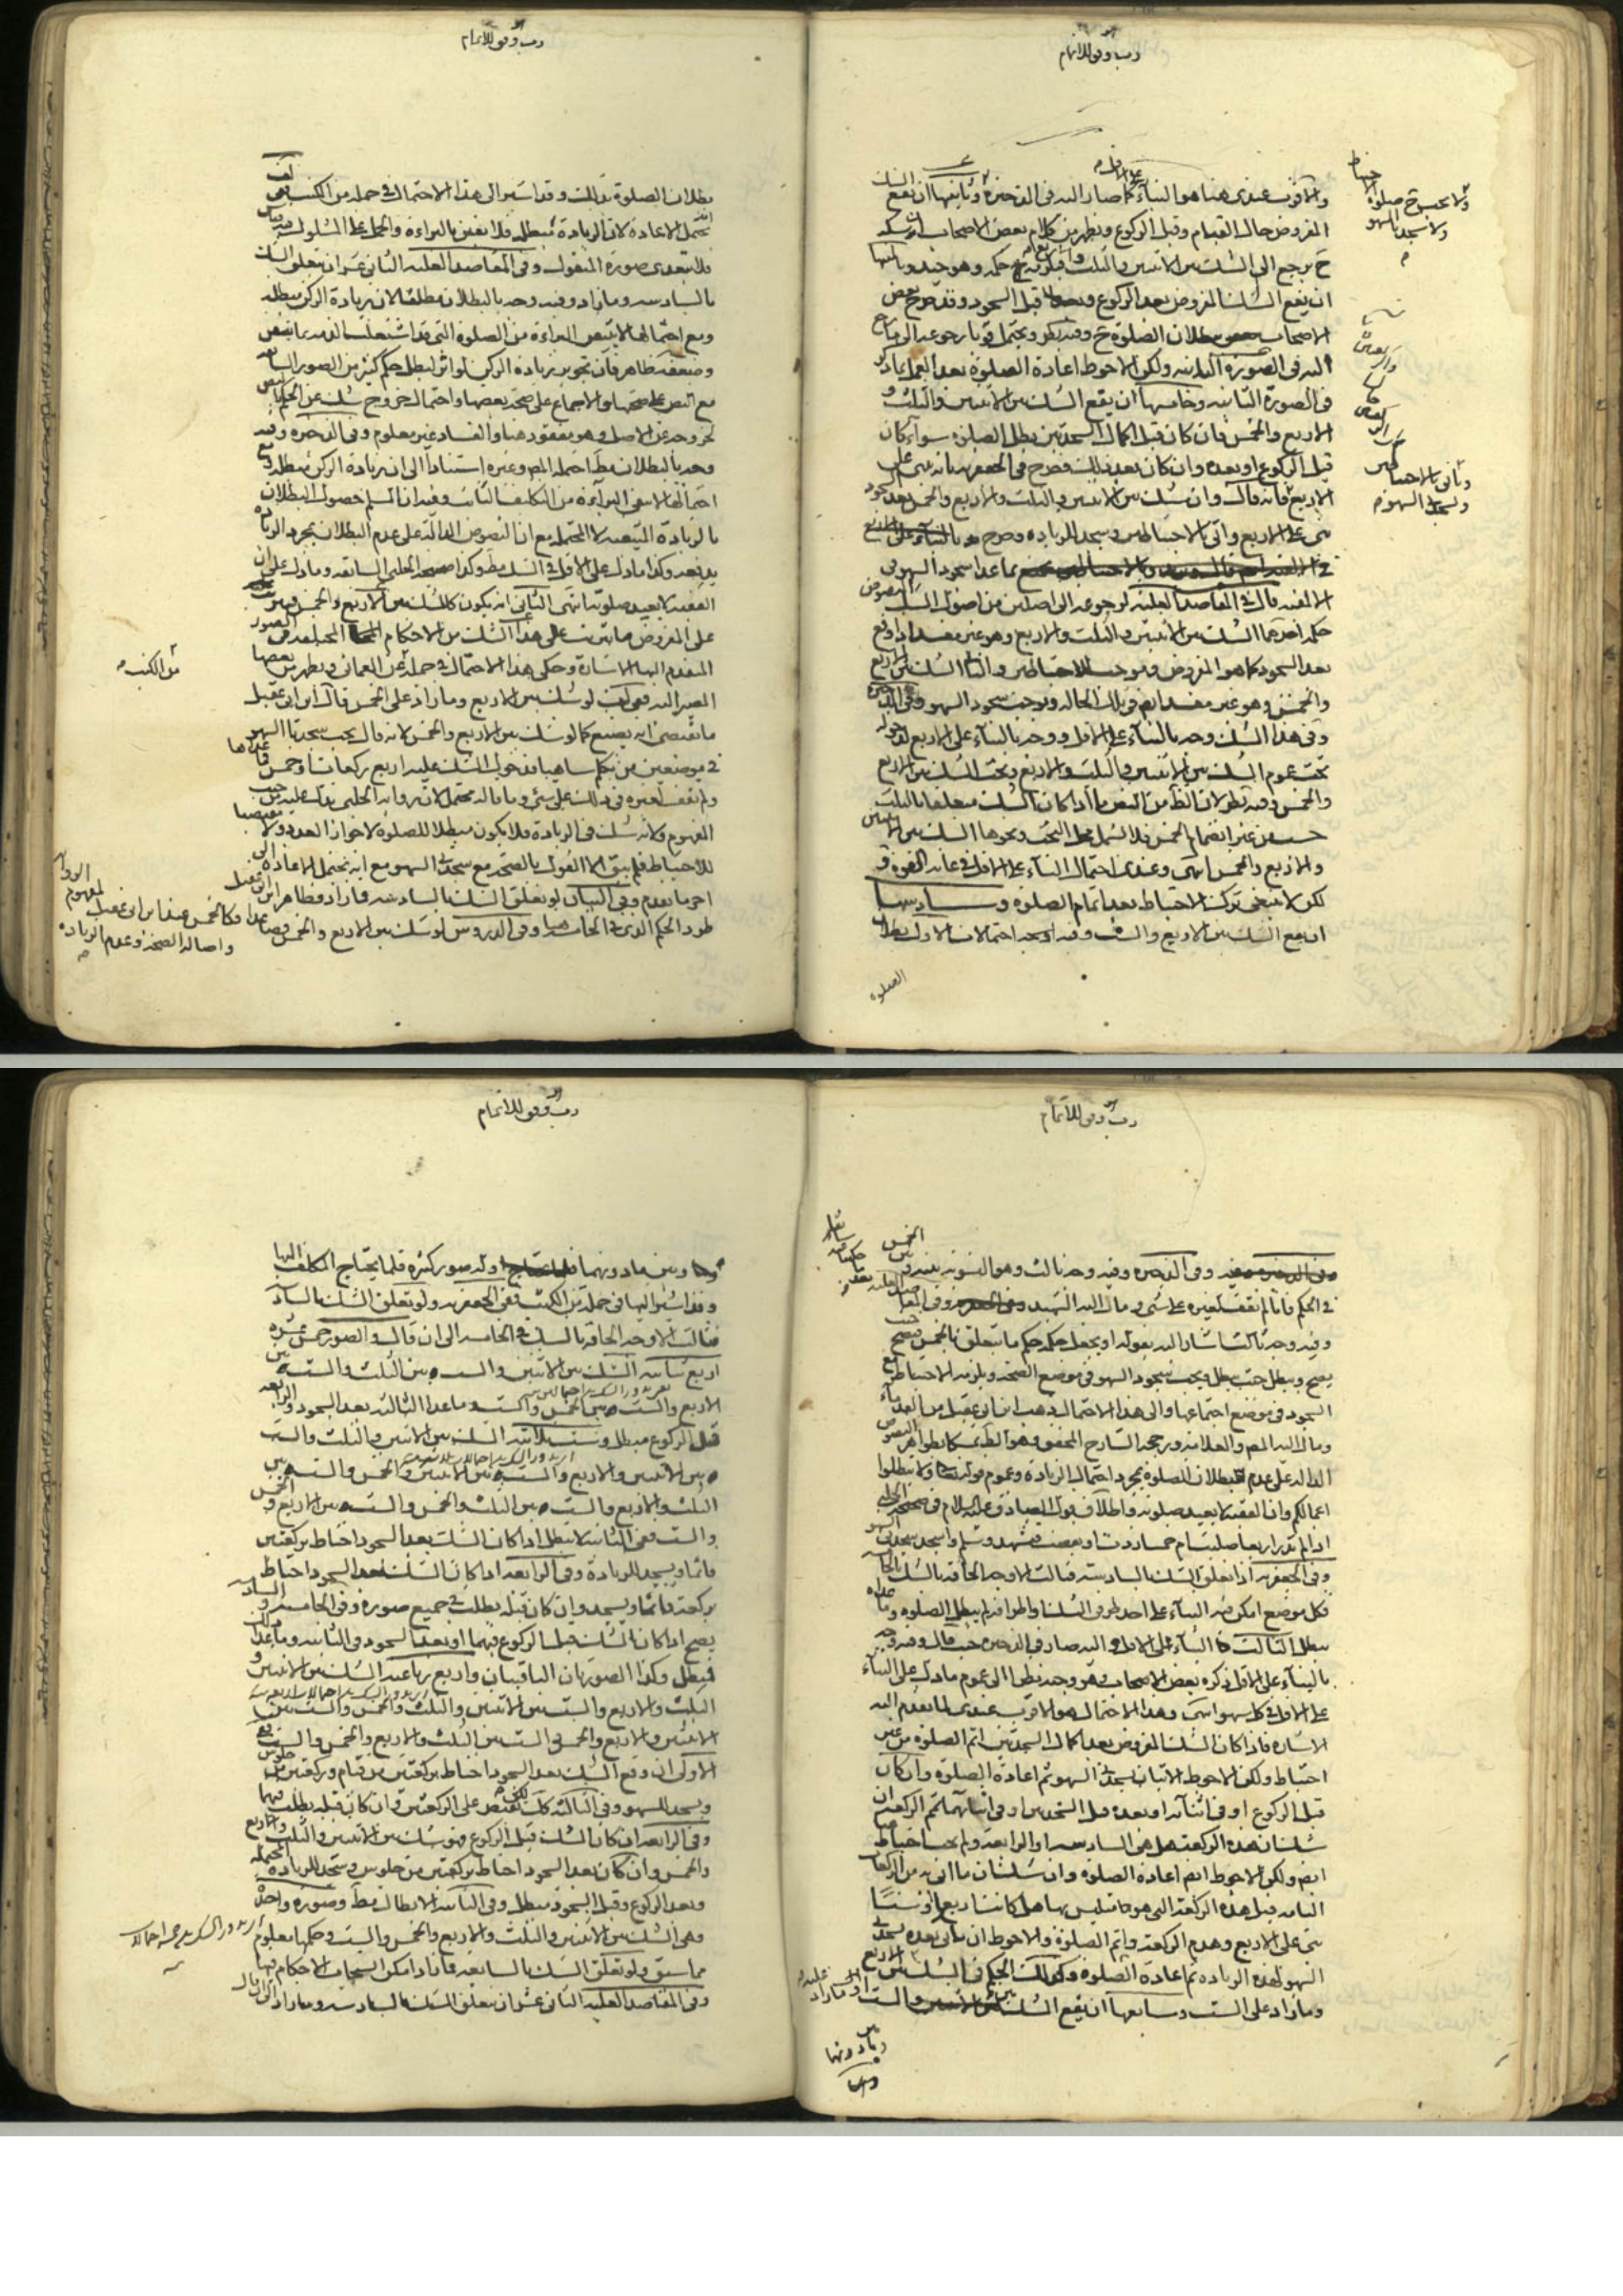 رب وفق للاتمام
والاقرب عندى هنا هو البناء على الاقل كما صار اليه فى الذخيرة وثانيها ان يقع الشك
المفروض حال القيام وقبل الركوع ويظهر من كلام بعض الاصحاب ان شكه
ح يرجع الى الشك بين الاثنين والثلث والاربع فيلزمه ح حكمه وهو جيد وثالثها
ان يقع الشك المفروض بعد الركوع وقبل السجود وقد صرح بعض
الاصحاب ببطلان الصلوة ح وفيه نظر ويحتمل قويا رجوعه الى ما صار
اليه فى الصورة الثانية ولكن الاحوط اعادة الصلوة بعد العمل بما ذكر
فى الصورة الثانية وخامسها ان يقع الشك بين الاثنين والثلث و
الاربع والخمس فان كان قبل اكمال السجدتين بطل الصلوة سواء كان
قبل الركوع او بعده وان كان بعد ذلك فصرح فى الجعفرية بانه يبنى على
الاربع فانه قال وان شك بين الاثنين والثلث والاربع والخمس بعد السجود
بنى على الاربع واتى بالاحتياطين وسجد للزيادة وصرح
بما عدا سجود السهو فى
الالفية قال فى المقاصد العلية لرجوعه الى اصلين من اصول الشك المنصوص
حكمه احدهما الشك بين الاثنين والثلث والاربع وهو غير مفسد اذا وقع
بعد السجود كما هو المفروض وموجب للاحتياطين والثانى الشك بين الاربع
والخمس وهو غير مفسد ايضا فى تلك الحالة ويوجب سجود السهو وفى الذخيرة
وفى هذا الشك وجه بالبناء على الاقل ووجه بالبناء على الاربع لدخوله
تحت عموم الشك بين الاثنين والثلث والاربع وتحت الشك بين الاربع
والخمس وفيه نظر لان الظ من النص ما اذا كان الشك متعلقا بالثلث
حسب من غير انضمام الخمس فلا يشمل محل البحث ونحوها الشك بين الاثنين
والاربع والخمس انتهى وعندى احتمال البناء على الاقل فى غاية القوة و
لكن لا ينبغى ترك الاحتياط بعد اتمام الصلوة وسادسها
ان يقع الشك بين الاربع والست وفيه اوجه احتمالات الاول بطلان
الصلوة
ويأتى بالاحتياطين
ويسجد للسهو
رب وفق للاتمام
بطلان الصلوة بذلك وقد اشير الى هذا الاحتمال فى جملة من الكتب ففى
يحتمل الاعادة لان الزيادة مبطلة فلا يقين بالبراءة والحمل على المشكوك فيه قياس
فلا يتعدى صورة المنقول وفى المقاصد العلية الثانى عشر ان يتعلق الشك
بالسادسة وما زاد وفيه وجه بالبطلان مطلقا لان زيادة الركن مبطلة
ومع احتمالها لا يتيقن البراءة من الصلوة التى قد اشتغلت الذمة بها بيقين
وضعفه ظاهر فان تجويز زيادة الركن لو اثر لبطل حكم كثير من الصور السابقة
مع النص على صحتها والاجماع على صحة بعضها واحتمال خروج شك عن الحكم بالنص
لخروجه عن الاصل وهو مفقود هنا والفساد غير معلوم وفى الذخيرة وفيه
وجه بالبطلان مط احتمله المص وغيره استنادا الى ان زيادة الركن مبطلة ومع
احتمالها لا يبقى البراءة من التكليف الثابت وفيه انا لا نسلم حصول البطلان
بالزيادة المتيقنة لا المحتملة مع ان النصوص الدالة على عدم البطلان بمجرد الزيادة
يدفعه وكذا ما دل على الاقل فى الشك مط وكذا صحيحة الحلبى السابقة وما دل على ان
الفقيه لا يعيد صلوته انتهى الثانى انه يكون كالشك بين الاربع والخمس فيترتب
على المفروض ما يترتب على هذا الشك من الاحكام المختلفة فى الصور
المتقدم اليها الاشارة وحكى هذا الاحتمال فى جملة عن العمانى ويظهر من بعضها
المصير اليه ففى لف لو شك بين الاربع وما زاد على الخمس قال ابن ابى عقيل
ما يقتضى انه يصنع كما لو شك بين الاربع والخمس لانه قال يجب سجدتا السهو
فى موضعين من تكلم ساهيا ودخول الشك عليه اربع ركعات او خمس فما عداها
ولم نقف لغيره فى ذلك على شئ وما قاله محتمل لان رواية الحلبى تدل عليه من حيث
المفهوم ولانه شك فى الزيادة فلا يكون مبطلا للصلوة لاحراز العدد ولا مقتضيا
للاحتياط فلم يبق الا القول بالصحة مع سجدتى السهو مع انه يحتمل الاعادة الى
اخر ما تقدم وفى البيان لو تعلق الشك بالسادسة فما زاد فظاهر ابن ابى عقيل
طرد الحكم الذى فى الخامسة وفى الدروس لو شك بين الاربع والخمس فصاعدا فكالخمس عند ابن ابى عقيل لمفهوم الرواية
واصالة الصحة وعدم الزيادة
من الكتب
رب وفق للاتمام
وفى الذخيرة وفيه وجه ثالث وهو التسوية بينه وبين الخمس
فى الحكم فانا لم نقف لغيره على شئ ومال اليه الشهيد وفى المقاصد العلية
وفيه وجه ثالث اشار اليه بقوله او يجعل حكمه حكم ما يتعلق بالخمس فيصح حيث
يصح ويبطل حيث يبطل ويجب سجود السهو فى موضع الصحة ويلزمه الاحتياط مع
السجود فى موضع اجتماعها والى هذا الاحتمال ذهب ابن ابى عقيل من القدماء
ومال اليه المص والعلامة ورجحه الشارح المحقق وهو الظ تمسكا بظواهر النصوص
الدالة على عدم بطلان الصلوة بمجرد احتمال الزيادة وعموم قوله تعالى ولا تبطلوا
اعمالكم وان الفقيه لا يعيد صلوته واطلاق قول الصادق عليه السلام فى صحيحة الحلبى
اذا لم تدر اربعا صليت ام خمسا زدت او نقصت فتشهد وسلم واسجد سجدتى السهو
وفى الجعفرية اذا تعلق الشك بالسادسة فثالث الاوجه الحاقه بالشك بالخامسة
فكل موضع امكن فيه البناء على احد طرفى الشك او اطرافه لم يبطل الصلوة وما عداه
يبطل الثالث البناء على الاقل واليه صار فى الذخيرة حيث قال وفيه وجه
بالبناء على الاقل ذكره بعض الاصحاب وهو وجه نظرا الى عموم ما دل على البناء
على الاقل فى كل سهو انتهى وهذا الاحتمال هو الاقرب عندى لما تقدم اليه
الاشارة فاذا كان الشك المفروض بعد اكمال السجدتين اتم الصلوة من غير
احتياط ولكن الاحوط الاتيان بسجدتى السهو ثم اعادة الصلوة وان كان
قبل الركوع او فى اثنائه او بعده قبل السجدتين او فى اثنائهما تمم الركعة
شك ان هذه الركعة هل هى السادسة او الرابعة ولم يجب احتياط
ايضا ولكن الاحوط ايضا اعادة الصلوة وان شك ان ما اتى به من الركعات
التامة قبل هذه الركعة التى هو متلبس بها هل كانت اربعا او ستا
بنى على الاربع وهدم الركعة واتم الصلوة والاحوط ان ياتى بعده بسجدتى
السهو لهذه الزيادة ثم اعادة الصلوة وكذلك الحكم فى الشك بين الاربع
وما زاد على الست وسابعها ان يقع الشك بين الست او ما زاد عليه
وبين
ما دونها
رب وفق للاتمام
وبين ما دونها وله صور كثيرة قلما يحتاج المكلف اليها
وقد اشير اليها فى جملة من الكتب ففى الجعفرية ولو تعلق الشك بالسادسة
فثالث الاوجه الحاقه بالشك فى الخامسة الى ان قال والصور خمس عشرة
اربع ثنائية الشك بين الاثنين والست وبين الثلث والست وبين
الاربع والست وبين الخمس والست وما عدا الثالثة بعد السجود والرابعة
قبل الركوع مبطل وست ثلاثية الشك بين الاثنين والثلث والست
وبين الاثنين والاربع والست وبين الاثنين والخمس والست وبين
الثلث والاربع والست وبين الثلث والخمس والست وبين الاربع والخمس
والست ففى الثانية لا يبطل اذا كان الشك بعد السجود احتاط بركعتين
قائما ويسجد للزيادة وفى الرابعة اذا كان الشك بعد السجود احتاط
بركعة قائما ويسجد وان كان قبله بطلت فى جميع صوره وفى الخامسة والسادسة
يصح اذا كان الشك قبل الركوع فيهما او بعد السجود فى الثانية وما عدا ذلك
فيبطل وكذا الصورتان الباقيتان واربع رباعية الشك بين الاثنين و
الثلث والاربع والست وبين الاثنين والثلث والخمس والست وبين
الاثنين والاربع والخمس والست وبين الثلث والاربع والخمس والست ففى
الاولى ان وقع الشك بعد السجود احتاط بركعتين من قيام وركعتين من جلوس
ويسجد للسهو وفى الثالثة كك لكن يقتصر على الركعتين وان كان قبله بطلت فيهما
وفى الرابعة ان كان الشك قبل الركوع فهو شك بين الاثنين والثلث والاربع
والخمس وان كان بعد السجود احتاط بركعتين من جلوس وسجد للزيادة المحتملة
وبعد الركوع وقبل السجود مبطل وفى الثانية الابطال مط وصورة واحدة
وهى الشك بين الاثنين والثلث والاربع والخمس والست وحكمها معلوم
مما سبق ولو تعلق الشك بالسابعة فما زاد امكن انسحاب الاحكام فيها
وفى المقاصد العلية الثانى عشر ان يتعلق الشك بالسادسة وما زاد الى ان قال